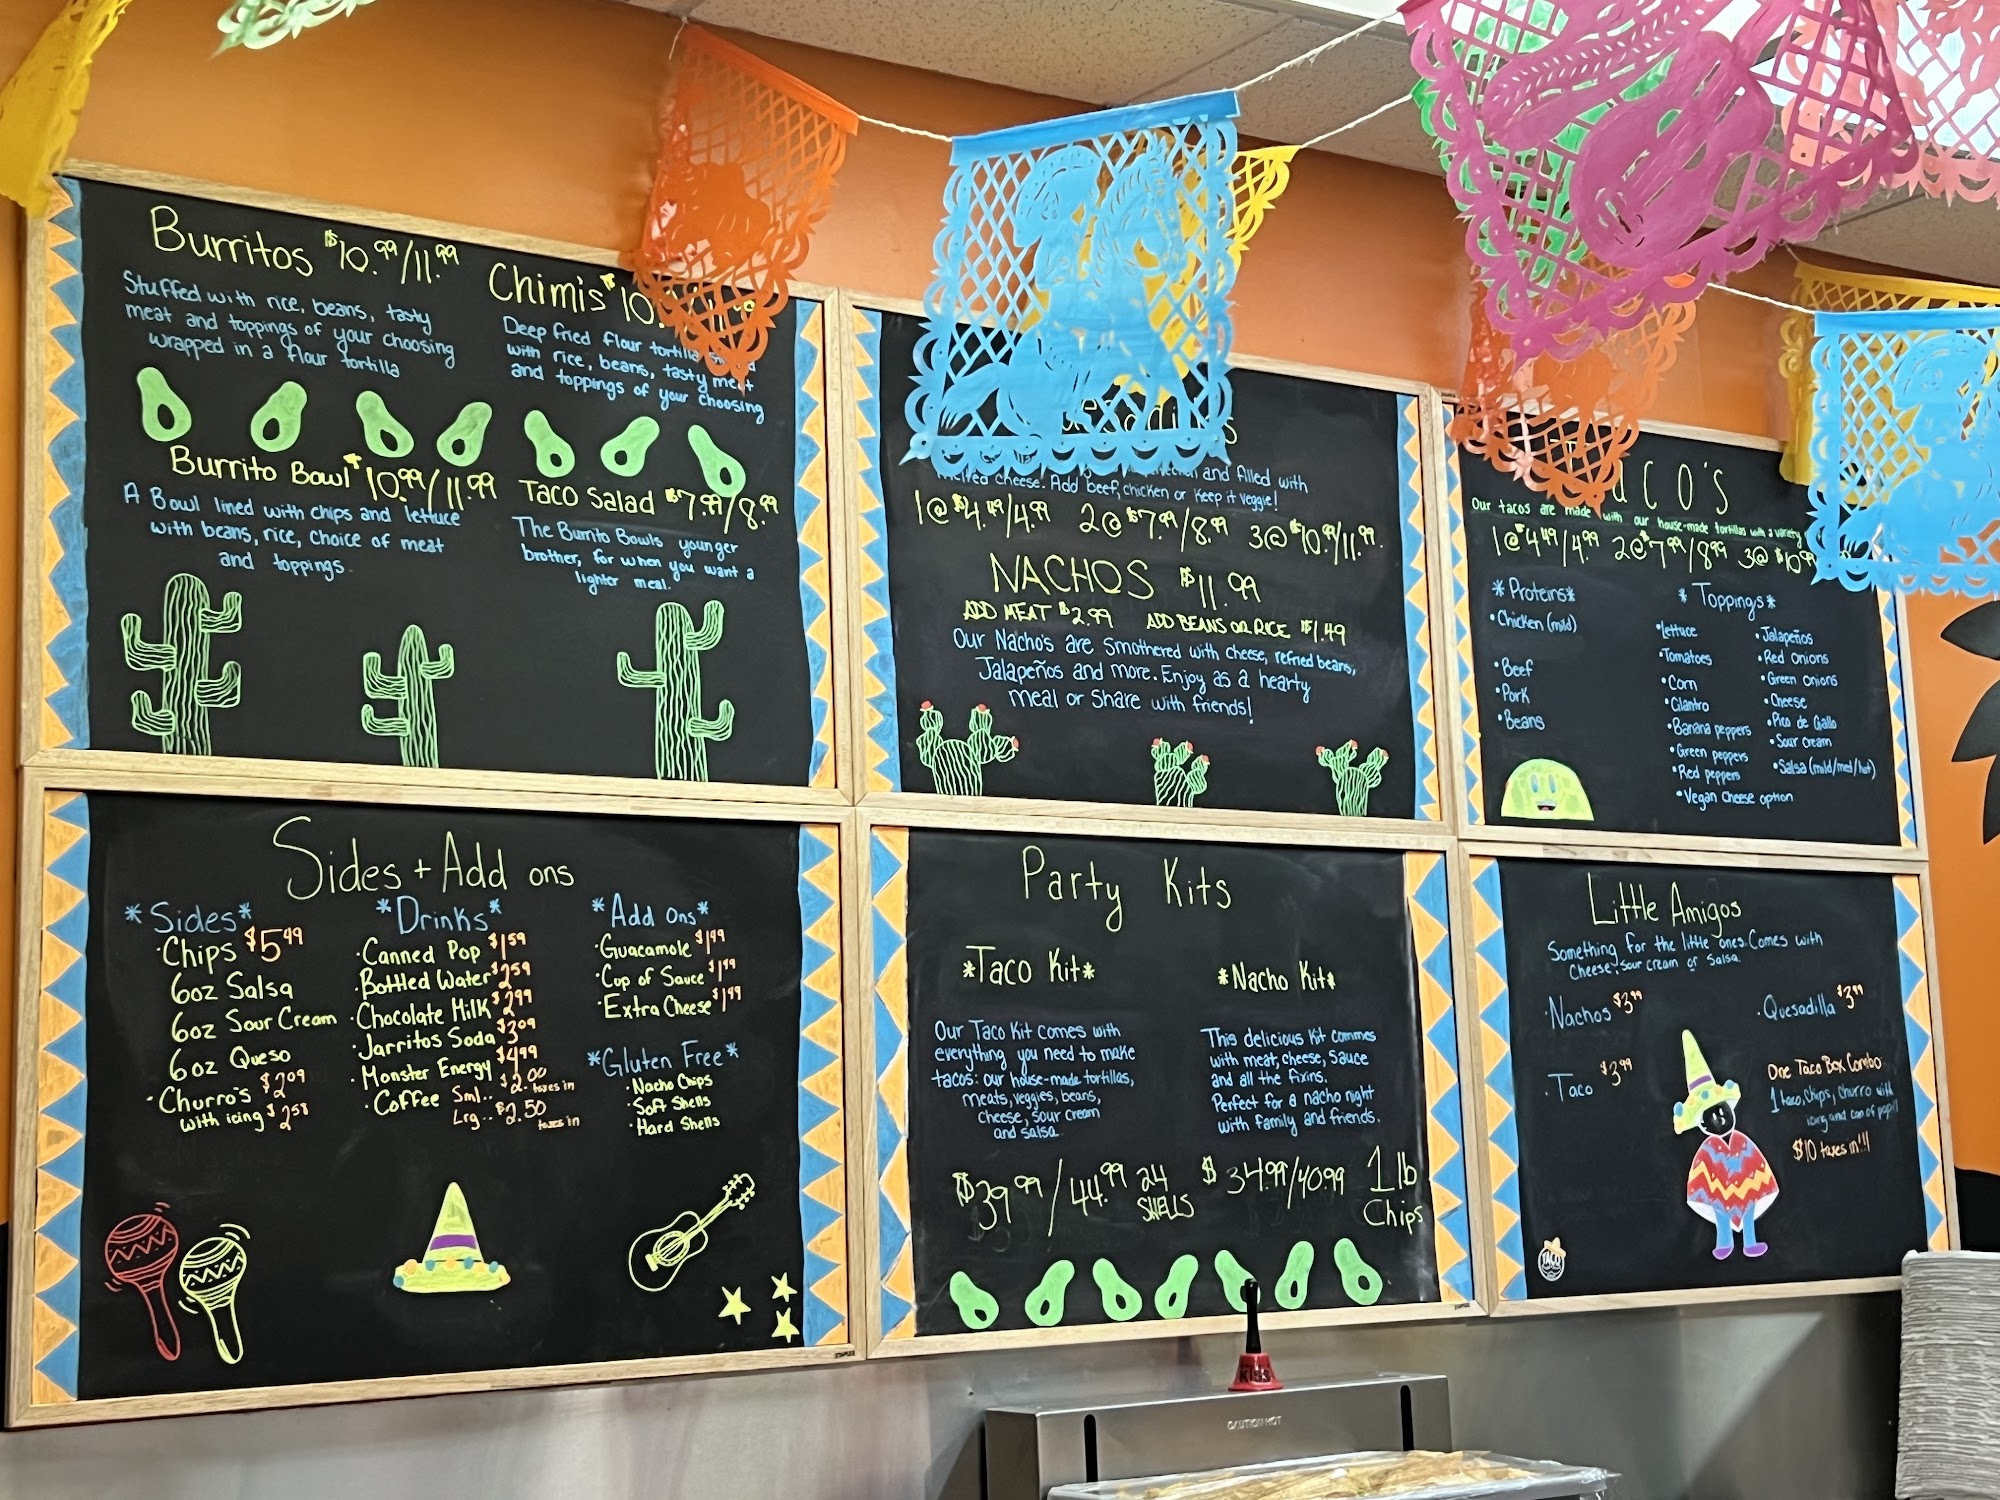 Burritos $10.99/11.99
Stuffed with rice, beans, tasty
meat and toppings of your choosing
wrapped in a flour tortilla
Chimis $10.
Deep fried flour tortilla
with rice, beans, tasty meat
and toppings of your choosing
Burrito Bowl $10.99/11.99
A Bowl lined with chips and lettuce
with beans, rice, choice of meat
and toppings.
Taco Salad $7.99/8.99
The Burrito Bowls younger
brother, for when you want a
lighter meal.
and filled with
melted cheese. Add beef, chicken or keep it veggie!
1@ $4.49/4.99 2@ $7.99/8.99 3@ $10.99/11.99
NACHOS $11.99
ADD MEAT $2.99 ADD BEANS OR RICE $1.49
Our Nacho's are smothered with cheese, refried beans,
Jalapeños and more. Enjoy as a hearty
meal or share with friends!
Taco's
Our tacos are made with our house-made tortillas with a variety
1@ $4.49/4.99 2@ $7.99/8.99 3@ $10.99
*Proteins*
•Chicken (mild)
•Beef
•Pork
•Beans
*Toppings*
•lettuce
•Tomatoes
•Corn
•Cilantro
•Banana peppers
•Green peppers
•Red peppers
•Vegan cheese option
•Jalapeños
•Red Onions
•Green onions
•Cheese
•Pico de Gallo
•Sour cream
•Salsa (mild/med/hot)
Sides + Add ons
*Sides*
•Chips $5.49
6oz Salsa
6oz Sour Cream
6oz Queso
•Churro's $2.09
with icing $2.58
*Drinks*
•Canned Pop $1.59
•Bottled Water $2.59
•Chocolate Milk $2.99
•Jarritos Soda $3.09
•Monster Energy $4.99
•Coffee Sml.. $2.00 taxes in
Lrg.. $2.50
taxes in
*Add Ons*
•Guacamole $1.99
•Cup of Sauce $1.99
•Extra Cheese $1.99
*Gluten Free*
•Nacho Chips
•Soft Shells
•Hard Shells
Party Kits
*Taco Kit*
Our Taco Kit comes with
everything you need to make
tacos: our house-made tortillas,
meats, veggies, beans,
cheese, sour cream
and salsa.
$39.99/44.99 24
SHELLS
*Nacho Kit*
This delicious kit commes
with meat, cheese, sauce
and all the fixins.
Perfect for a nacho night
with family and friends.
$34.99/40.99 1lb
Chips
Little Amigos
Something for the little ones. Comes with
Cheese, sour cream or salsa.
•Nachos $3.99
•Quesadilla $3.99
•Taco $3.99
One Taco Box Combo:
1 taco, chips, churro with
icing and can of pop!
$10 taxes in!!!
TACO
STAPLES
KISS
CAUTION HOT